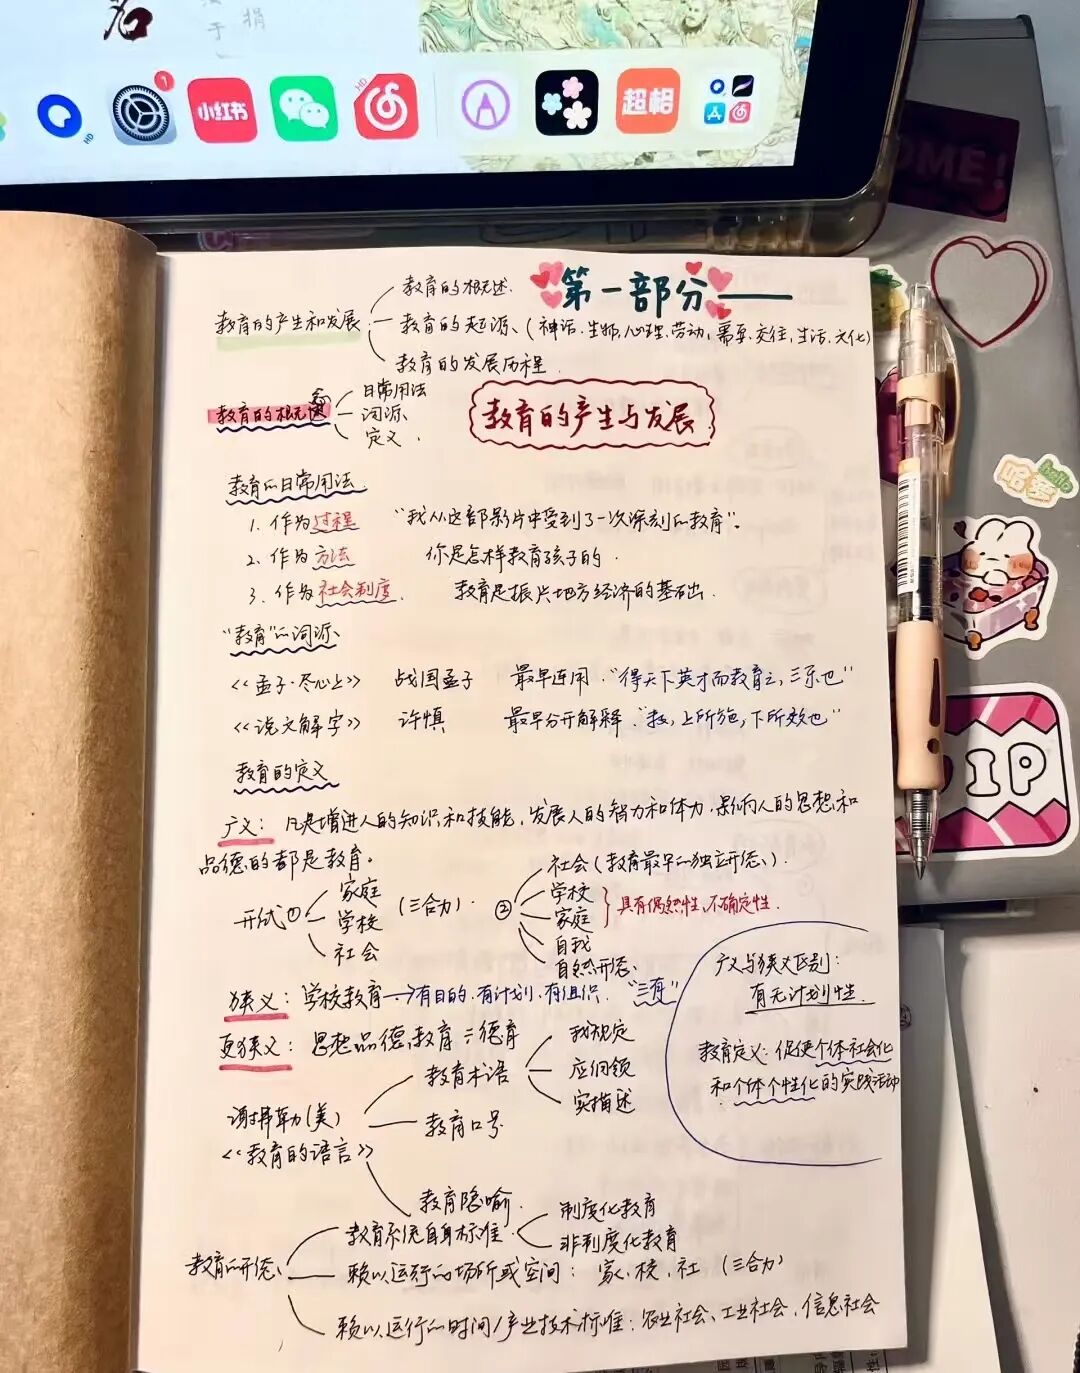 若
捐
于
小红书
超相
HD
HD
1
OME!
第一部分——
教育的产生和发展
教育的概述.
教育的起源、(神话.生物,心理,劳动,需要,交往,生活,文化)
教育的发展历程.
教育的产生与发展
教育的概述
日常用法
词源
定义.
教育的日常用法
1. 作为过程 “我从这部影片中受到了一次深刻的教育”.
2. 作为方法 你是怎样教育孩子的.
3. 作为社会制度. 教育是振兴地方经济的基础.
“教育”的词源
《孟子·尽心上》 战国孟子 最早连用.“得天下英才而教育之,三乐也”
《说文解字》 许慎 最早分开解释.“教,上所施,下所效也”
教育的定义
广义: 凡是增进人的知识和技能,发展人的智力和体力,影响人的思想和
品德的都是教育。
形式①
家庭
学校
社会
(三合力).
②
社会(教育最早的独立形态).
学校
家庭
自我
自然形态
具有偶然性,不确定性.
狭义: 学校教育→有目的.有计划.有组织. “三有”
更狭义: 思想品德教育 = 德育
广义与狭义区别:
有无计划性.
教育定义: 促使个体社会化
和个体个性化的实践活动
谢弗勒(美)
《教育的语言》
教育术语
我规定
应纲领
实描述
教育口号
教育隐喻.
教育的形态
教育系统自身标准.
制度化教育
非制度化教育
赖以运行的场所或空间: 家、校、社 (三合力)
赖以运行的时间/产业技术标准: 农业社会、工业社会、信息社会
hello
哈喽
DIP